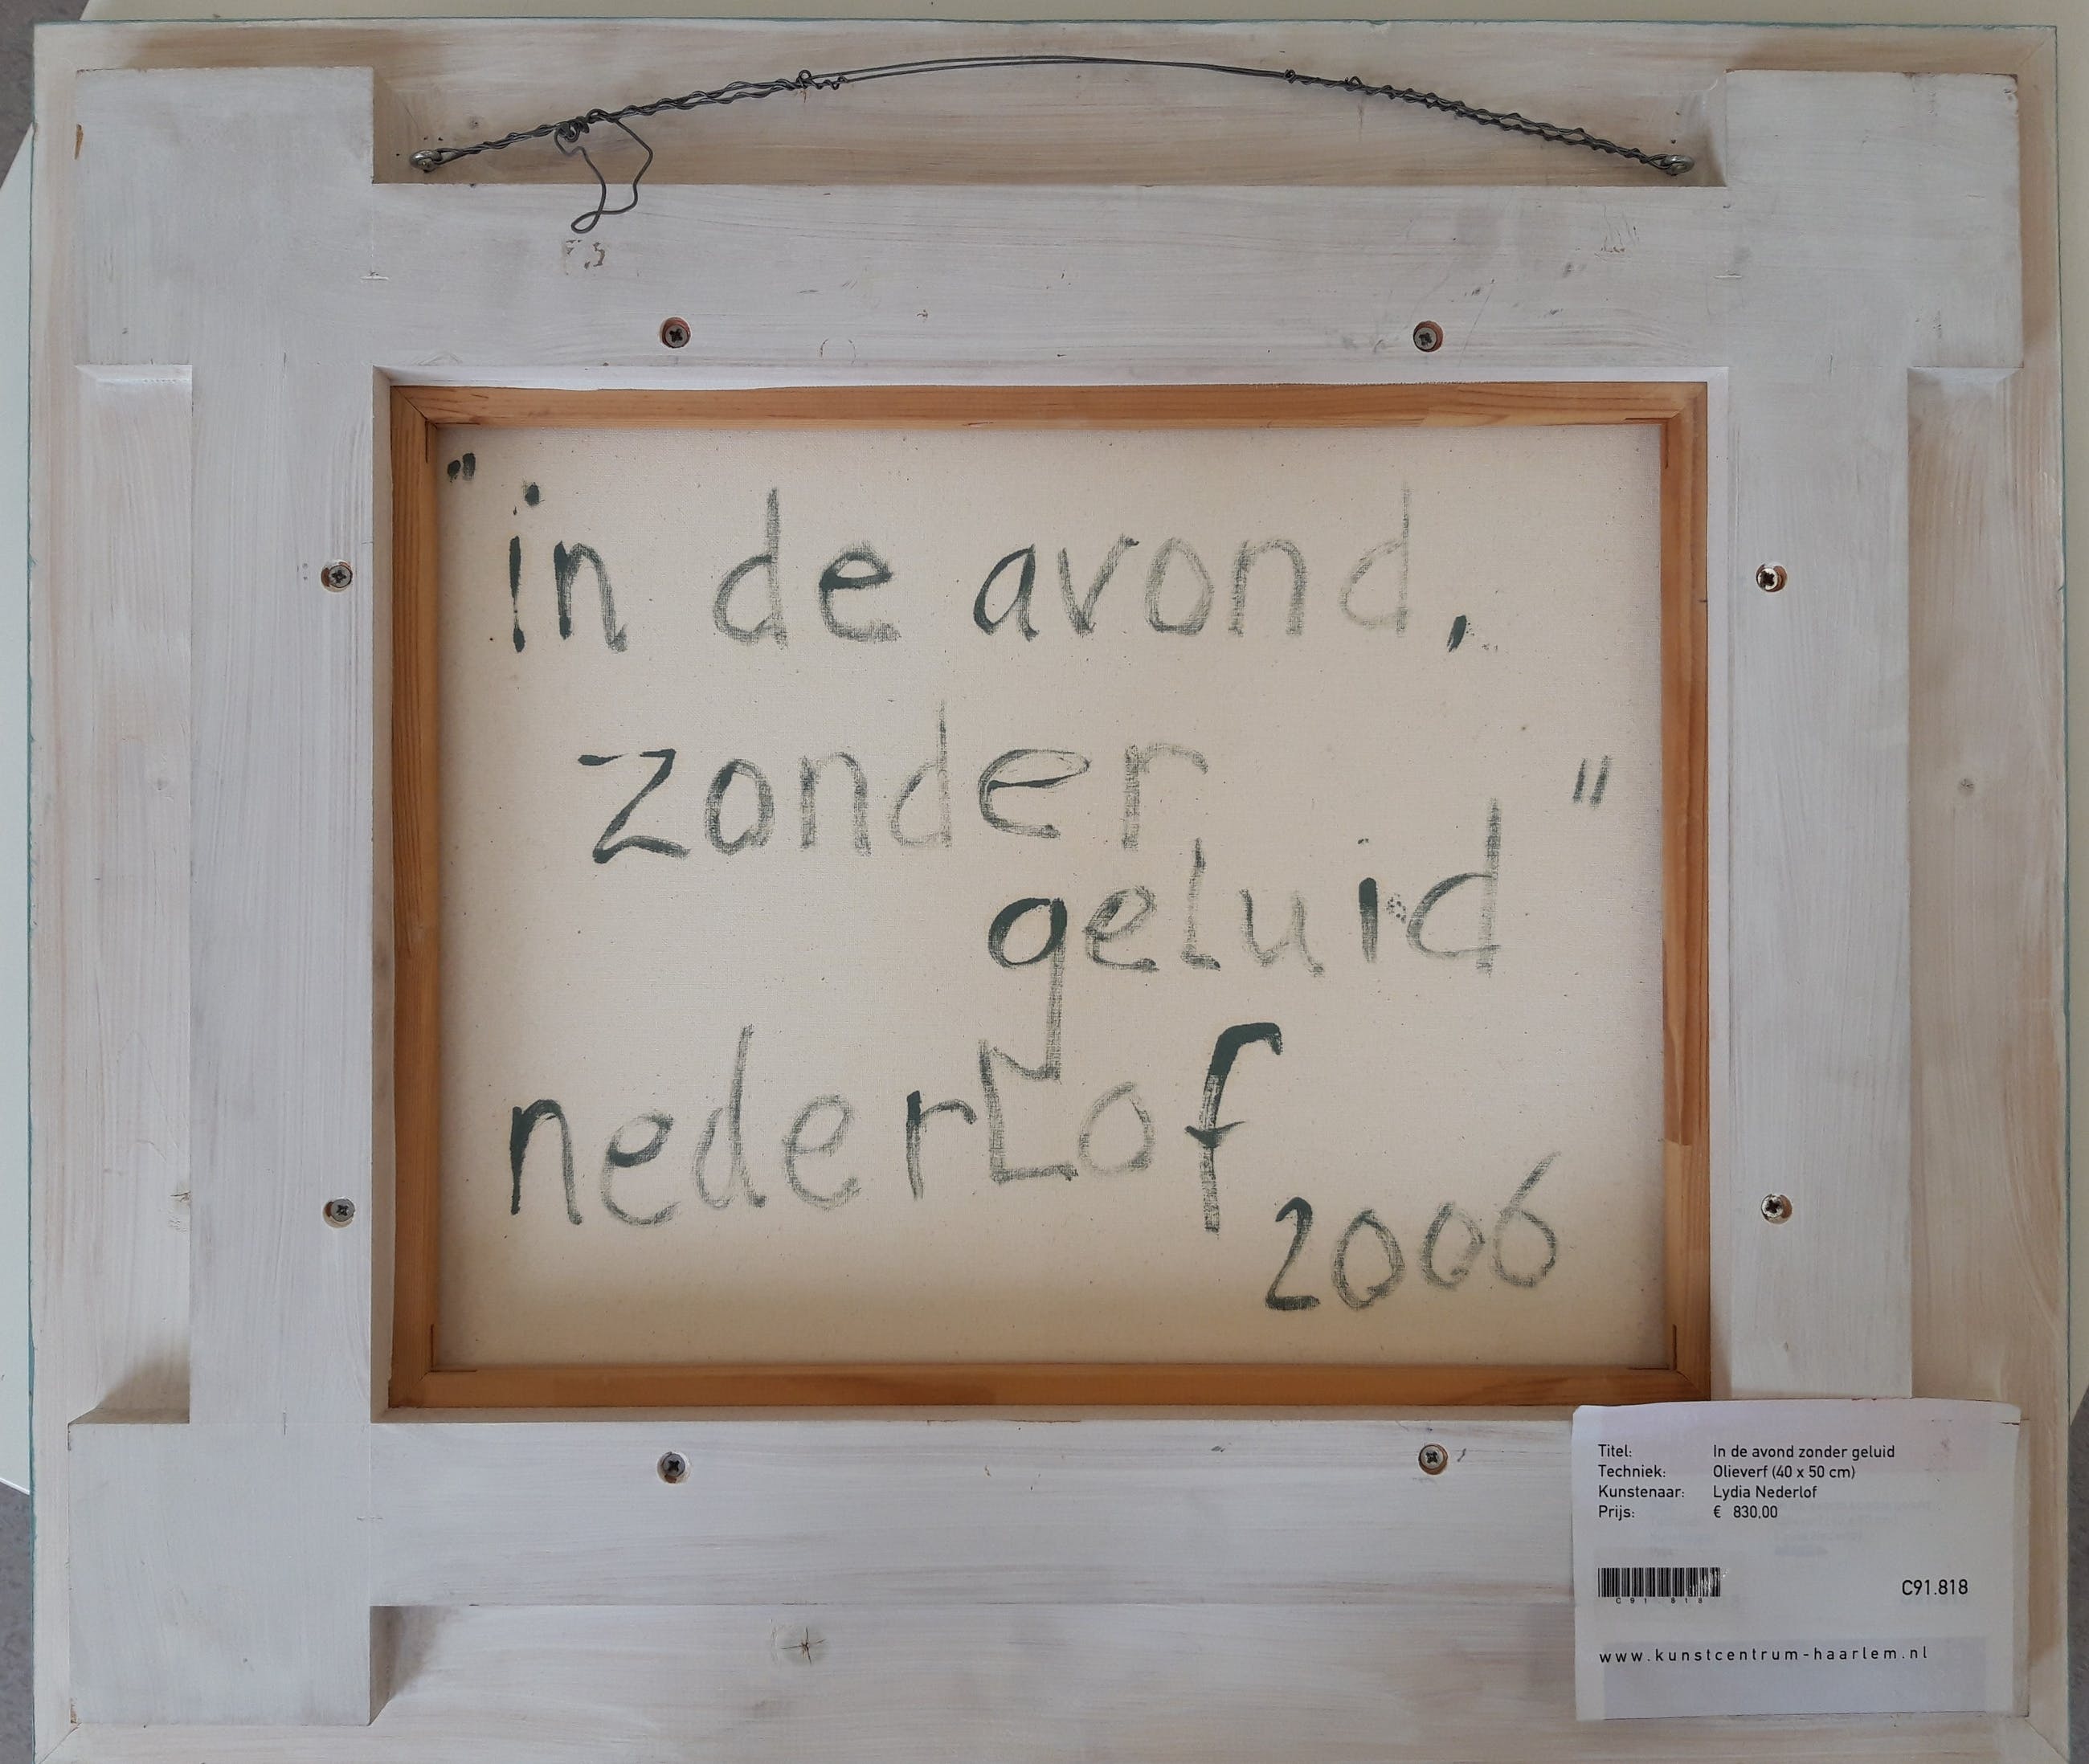 "in de avond,
zonder
geluid"
nederLof
2006
Titel: In de avond zonder geluid
Techniek: Olieverf (40 x 50 cm)
Kunstenaar: Lydia Nederlof
Prijs: € 830,00
C91 818
C91.818
www.kunstcentrum-haarlem.nl